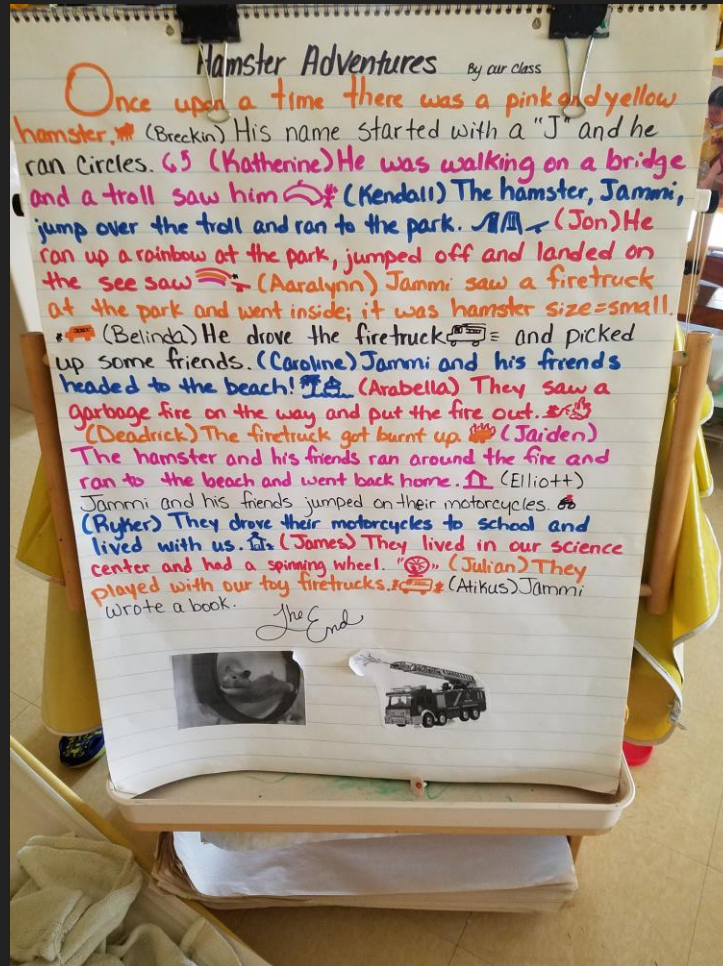 Hamster Adventures By our class
Once upon a time there was a pink and yellow
hamster. (Breckin) His name started with a "J" and he
ran circles. (Katherine) He was walking on a bridge
and a troll saw him (Kendall) The hamster, Jammi,
jump over the troll and ran to the park. (Jon) He
ran up a rainbow at the park, jumped off and landed on
the see saw (Aaralynn) Jammi saw a firetruck
at the park and went inside; it was hamster size=small.
(Belinda) He drove the firetruck and picked
up some friends. (Caroline) Jammi and his friends
headed to the beach! (Arabella) They saw a
garbage fire on the way and put the fire out.
(Deadrick) The firetruck got burnt up. (Jaiden)
The hamster and his friends ran around the fire and
ran to the beach and went back home. (Elliott)
Jammi and his friends jumped on their motorcycles.
(Ryker) They drove their motorcycles to school and
lived with us. (James) They lived in our science
center and had a spinning wheel. (Julian) They
played with our toy firetrucks. (Atikus) Jammi
wrote a book.
The End